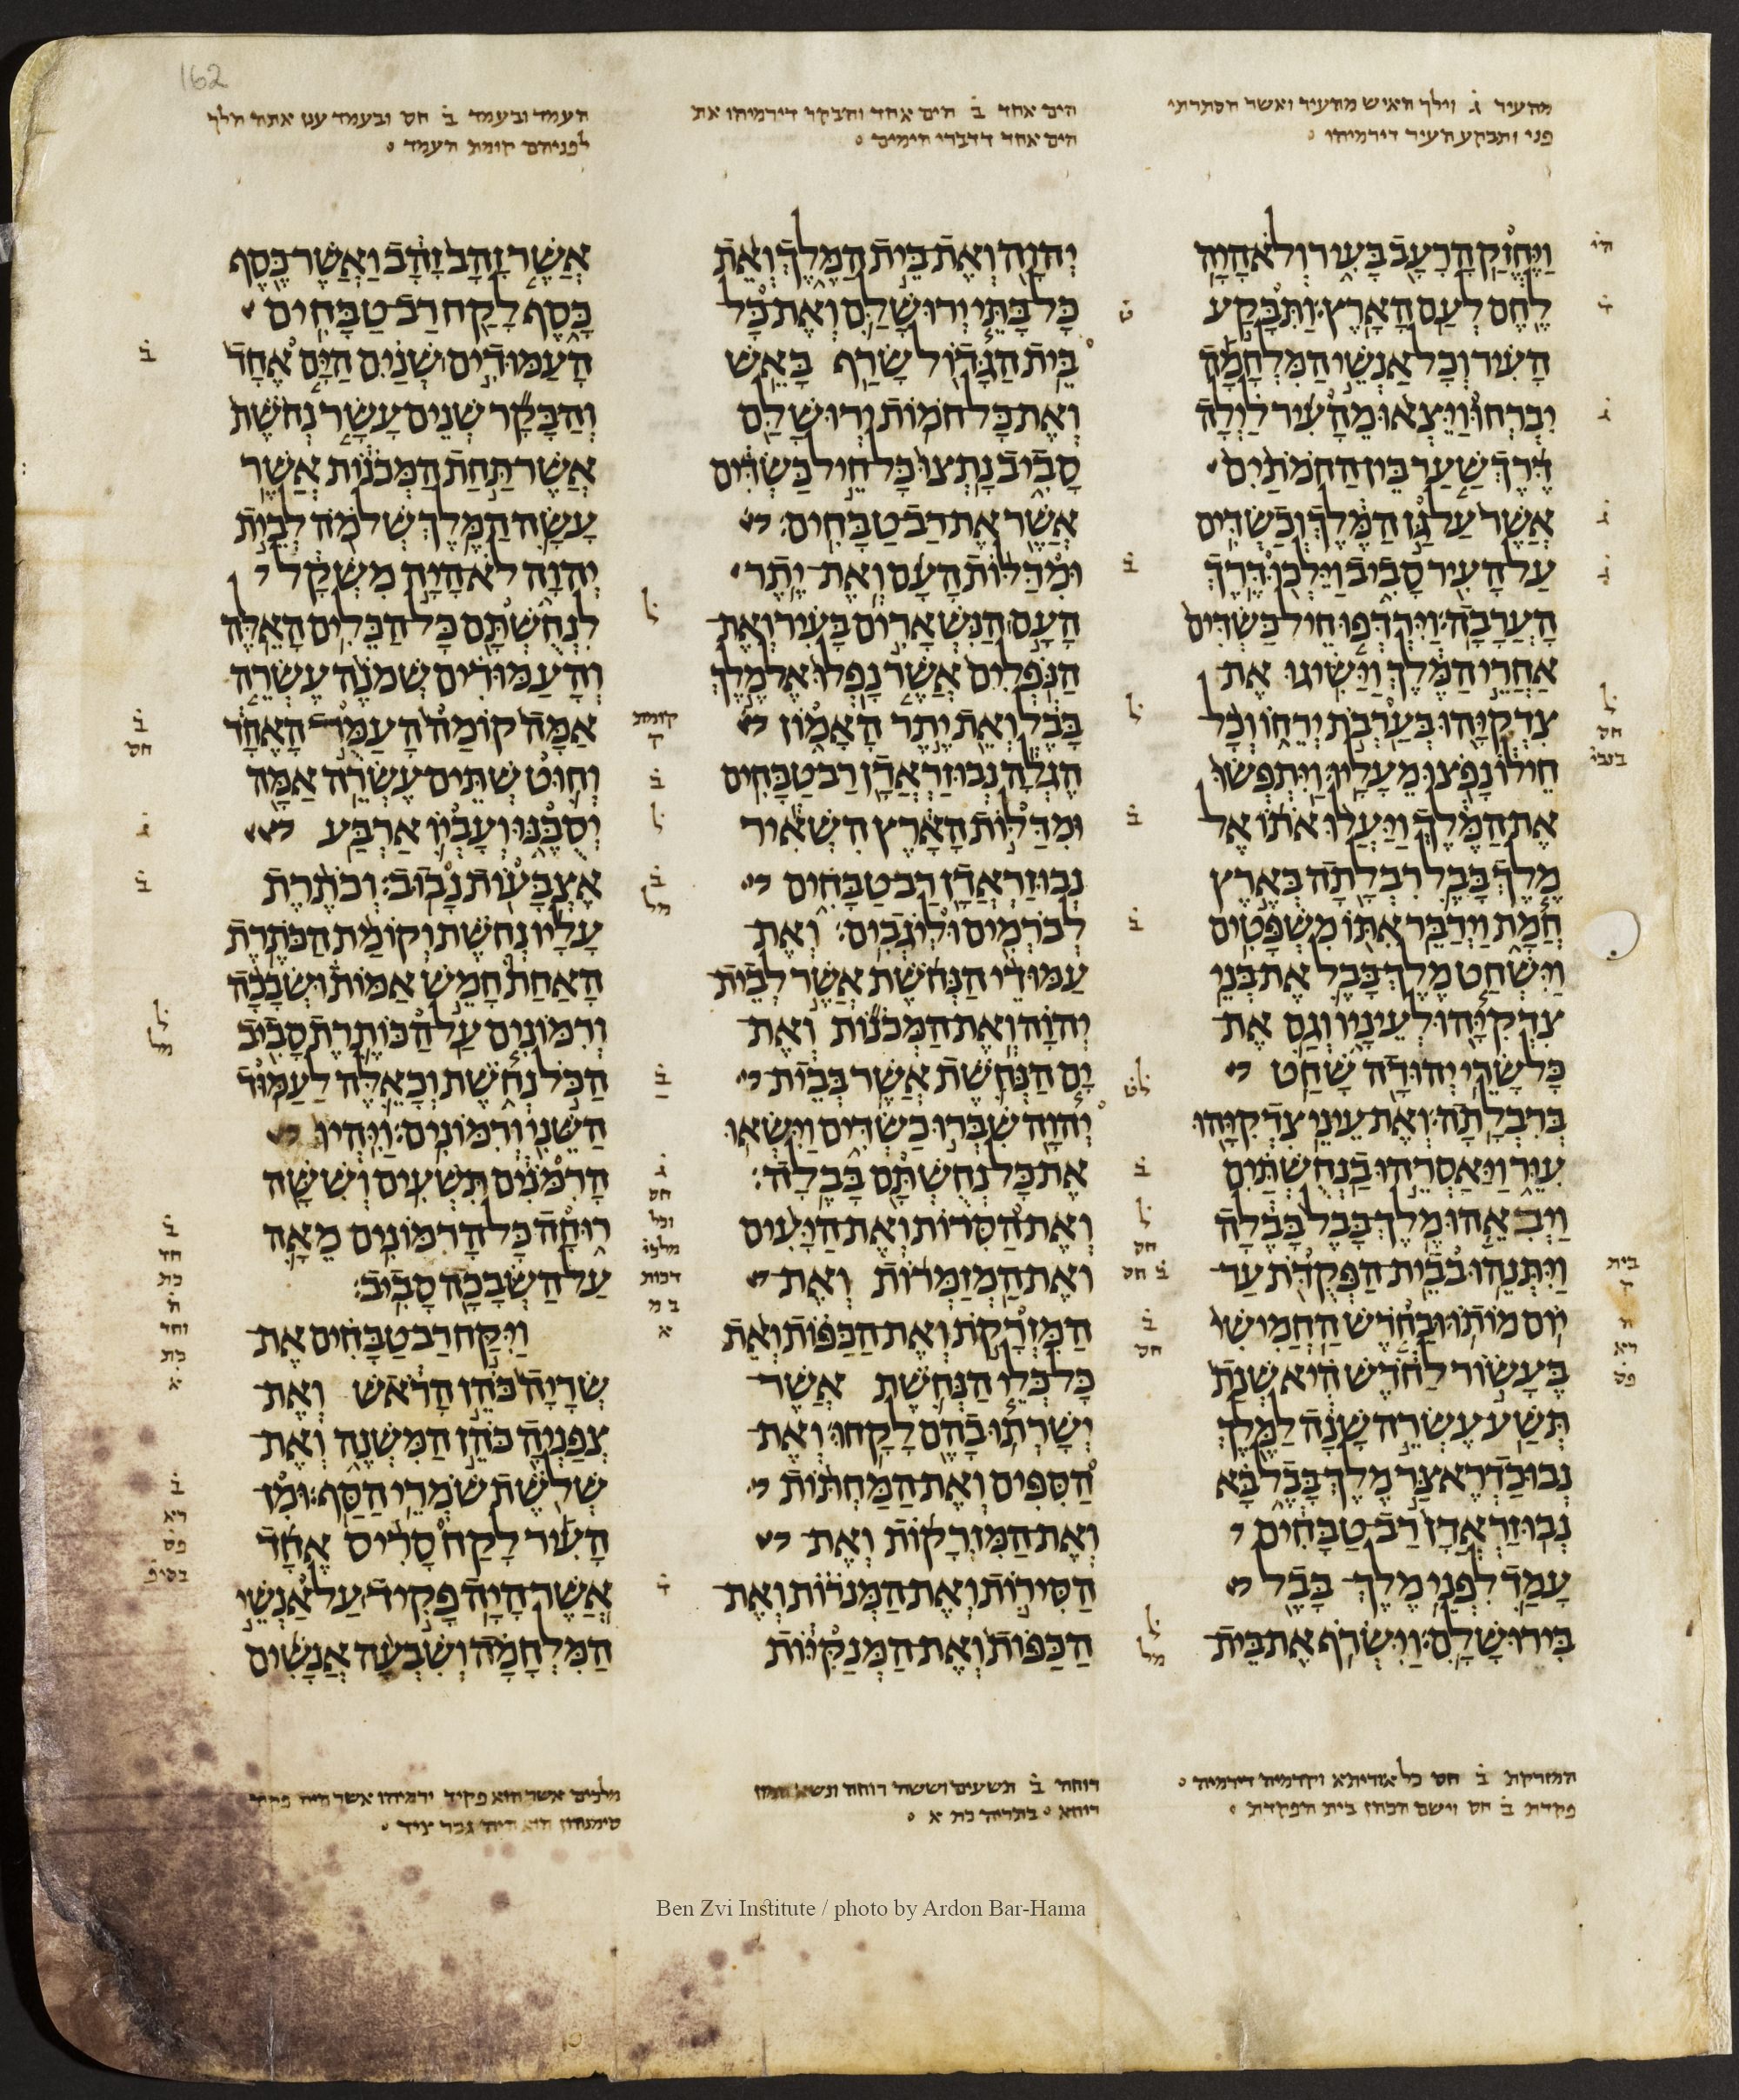 162
מהעיר ג וילך האיש מהעיר ואשר הסתרתי
פני ותבקע העיר דירמיהו
הים אחד ב הים אחד והבקר דירמיהו את
הים אחד דדברי הימים
העמד ובעמד ב חס ובעמד ענן אתה הלך
לפניהם קומת העמד
ויחזק הרעב בעיר ולא היה
לחם לעם הארץ׃ ותבקע
העיר וכל אנשי המלחמה
יברחו ויצאו מהעיר לילה
דרך שער בין החמתים
אשר על גן המלך וכשדים
על העיר סביב וילכו דרך
הערבה׃ וירדפו חיל כשדים
אחרי המלך וישיגו את
צדקיהו בערבת ירחו וכל
חילו נפצו מעליו׃ ויתפשו
את המלך ויעלו אתו אל
מלך בבל רבלתה בארץ
חמת וידבר אתו משפטים׃
וישחט מלך בבל את בני
צדקיהו לעיניו וגם את
כל שרי יהודה שחט
ברבלתה׃ ואת עיני צדקיהו
עור ויאסרהו בנחשתים
ויבאהו מלך בבל בבלה
ויתנהו בבית הפקדת עד
יום מותו׃ ובחדש החמישי
בעשור לחדש היא שנת
תשע עשרה שנה למלך
נבוכדראצר מלך בבל בא
נבוזראדן רב טבחים
עמד לפני מלך בבל
בירושלם׃ וישרף את בית
יהוה ואת בית המלך ואת
כל בתי ירושלם ואת כל
בית הגדול שרף באש׃
ואת כל חמות ירושלם
סביב נתצו כל חיל כשדים
אשר את רב טבחים׃
ומדלות העם ואת יתר
העם הנשארים בעיר ואת
הנפלים אשר נפלו אל מלך
בבל ואת יתר האמון
הגלה נבוזראדן רב טבחים׃
ומדלות הארץ השאיר
נבוזראדן רב טבחים
לכרמים וליגבים׃ ואת
עמודי הנחשת אשר לבית
יהוה ואת המכנות ואת
ים הנחשת אשר בבית
יהוה שברו כשדים וישאו
את כל נחשתם בבלה׃
ואת הסרות ואת היעים
ואת המזמרות ואת
המזרקת ואת הכפות ואת
כל כלי הנחשת אשר
ישרתו בהם לקחו׃ ואת
הספים ואת המחתות
ואת המזרקות ואת
הסירות ואת המנרות ואת
הכפות ואת המנקיות
אשר זהב זהב ואשר כסף
כסף לקח רב טבחים׃
העמודים שנים הים אחד
והבקר שנים עשר נחשת
אשר תחת המכנות אשר
עשה המלך שלמה לבית
יהוה לא היה משקל
לנחשתם כל הכלים האלה׃
והעמודים שמנה עשרה
אמה קומה העמד האחד
וחוט שתים עשרה אמה
יסבנו ועביו ארבע
אצבעות נבוב׃ וכתרת
עליו נחשת וקומת הכתרת
האחת חמש אמות ושבכה
ורמונים על הכותרת סביב
הכל נחשת וכאלה לעמוד
השני ורמונים׃ ויהיו
הרמנים תשעים וששה
רוחה כל הרמונים מאה
על השבכה סביב׃
ויקח רב טבחים את
שריה כהן הראש ואת
צפניה כהן המשנה ואת
שלשת שמרי הסף׃ ומן
העיר לקח סריס אחד
אשר היה פקיד על אנשי
המלחמה ושבעה אנשים
המזרקת ב חס כל אוריתא וקדמיה דירמיה
פקדת ב חס וישם הכהן בית הפקדת
רוחה ב תשעים וששה רוחה
רוחא בתריה כת א
מלכים אשר הוא פקיד ירמיהו אשר היה פקיד
Ben Zvi Institute / photo by Ardon Bar-Hama